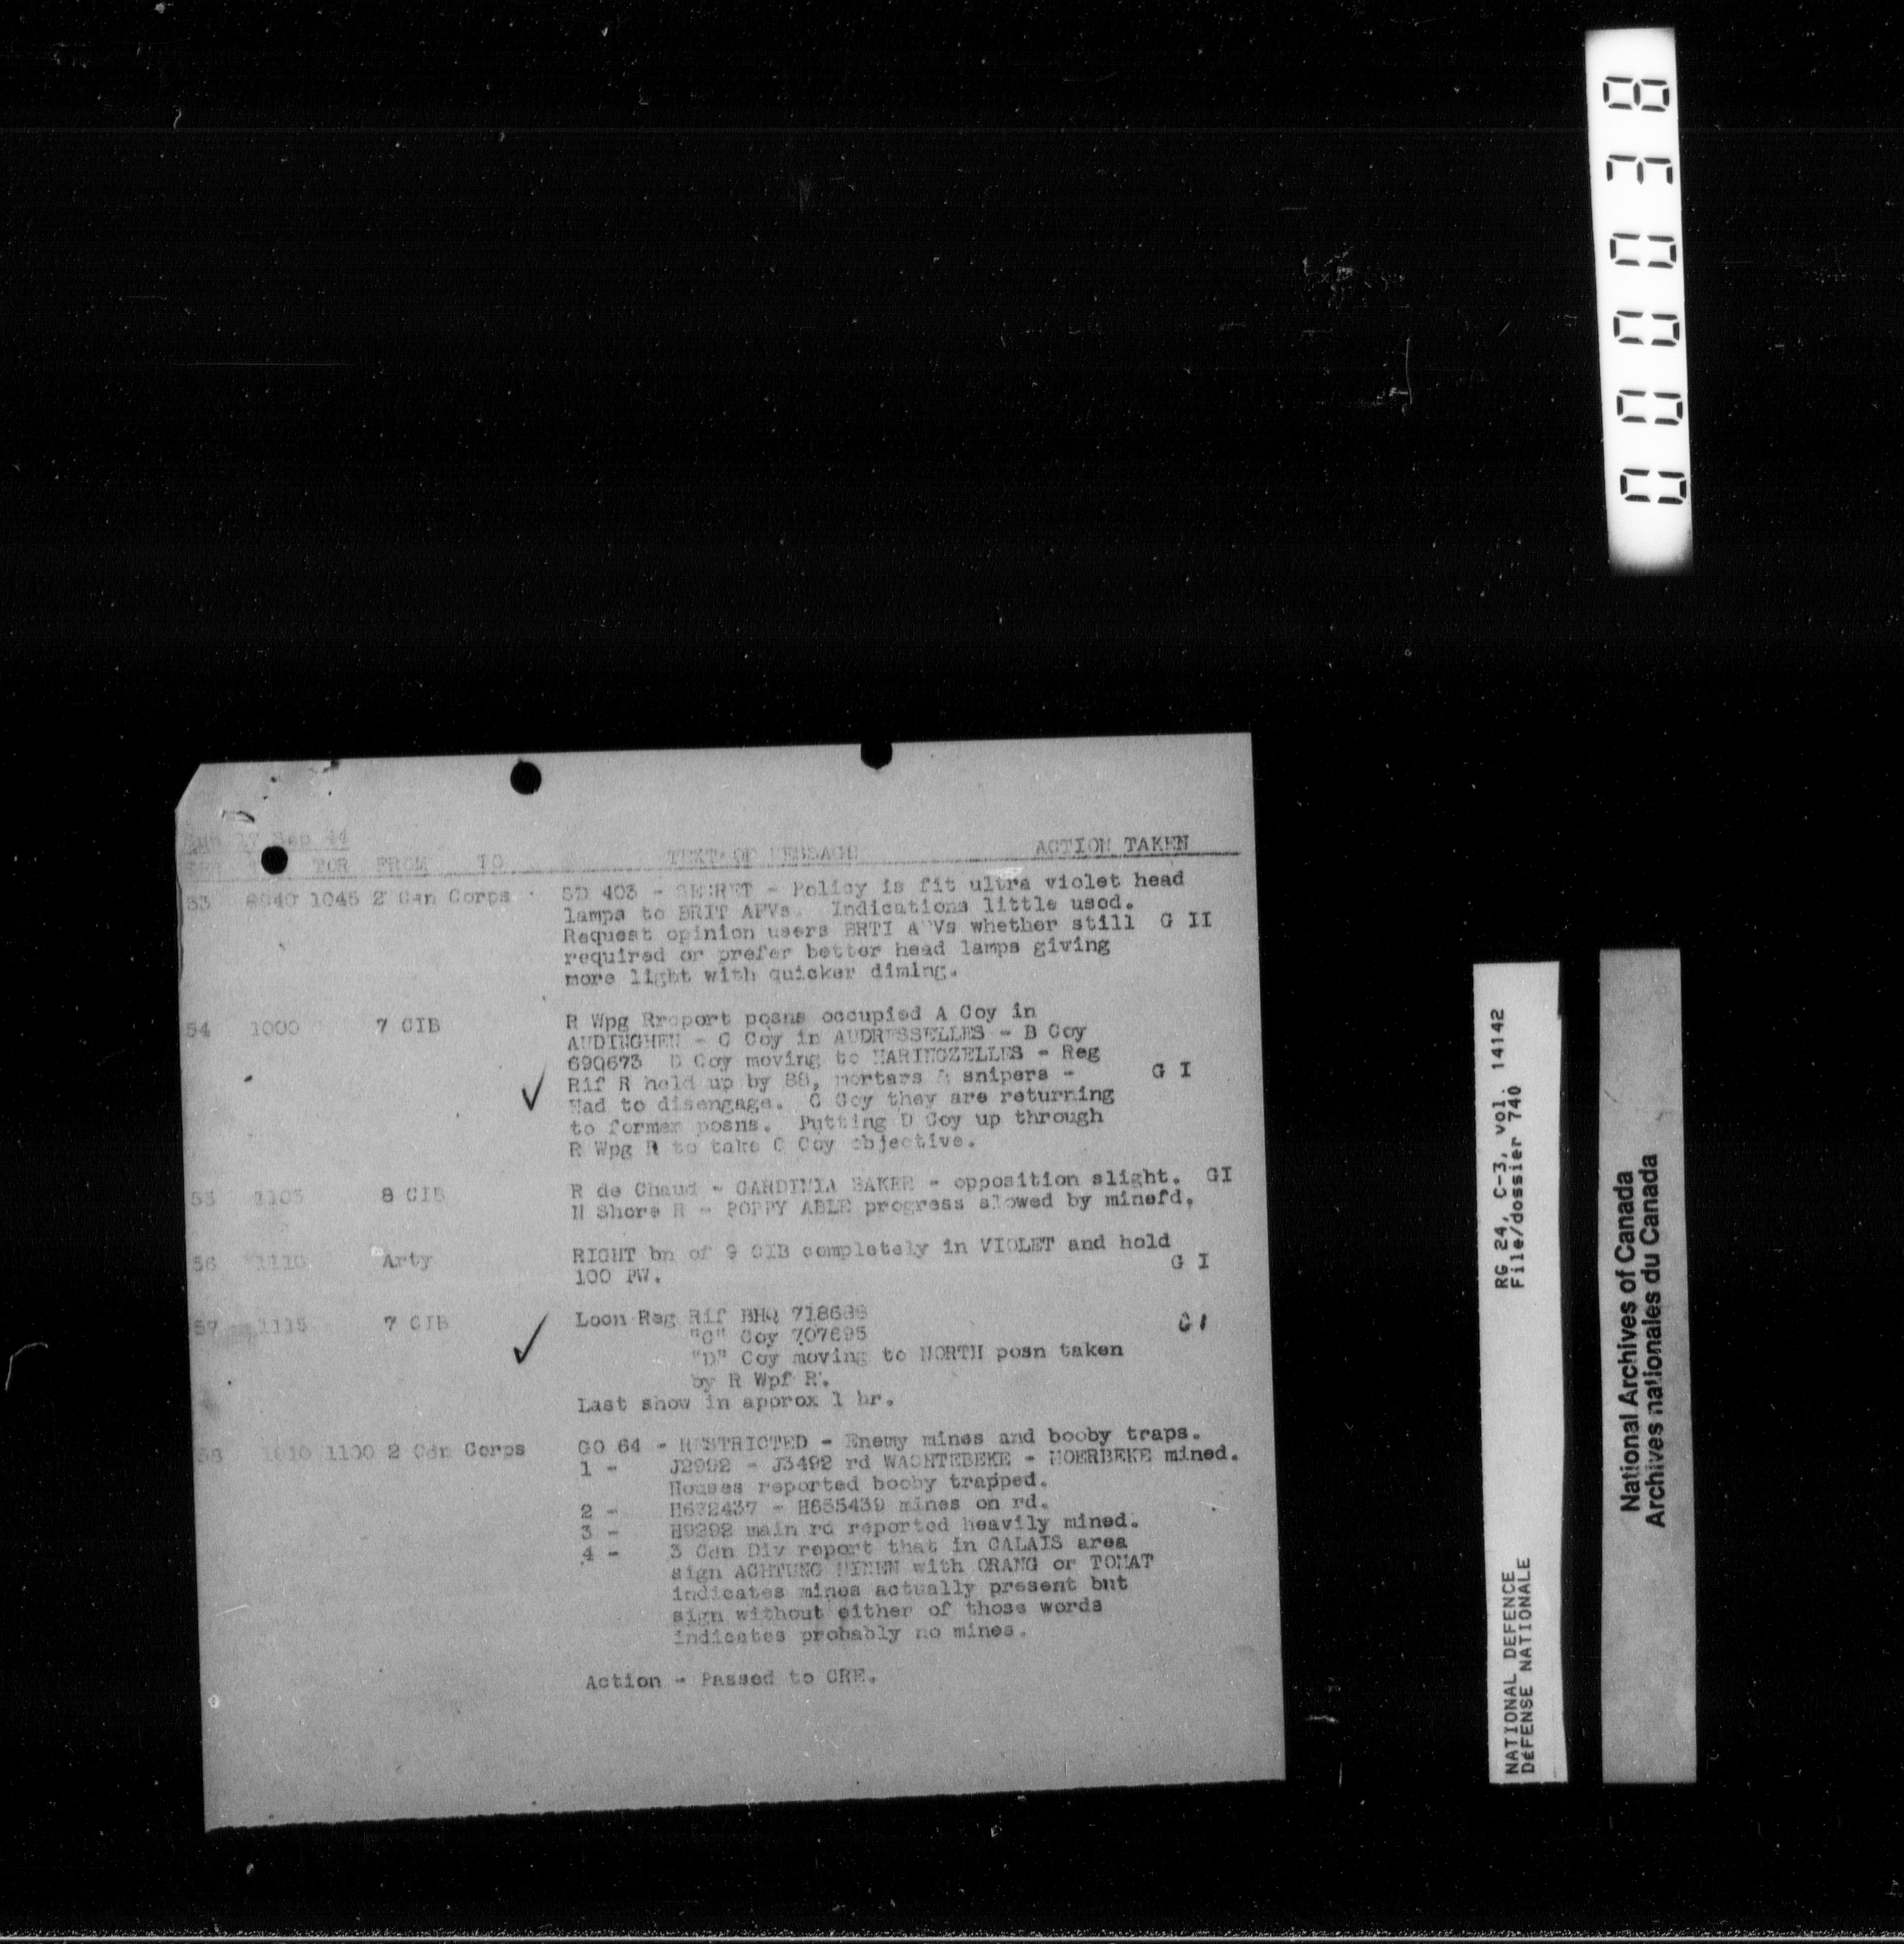 000038
Sun 17 Sep 44
TOR FROM TO TEXT OF MESSAGE ACTION TAKEN
53 0940 1045 2 Cdn Corps SD 403 - SECRET - Policy is fit ultra violet head
lamps to BRIT AFVs. Indications little used.
Request opinion users BRTI AFVs whether still G II
required or prefer better head lamps giving
more light with quicker diming.
54 1000 7 CIB R Wpg Rreport posns occupied A Coy in
AUDINGHEN - C Coy in AUDRESSELLES - B Coy
690673 D Coy moving to HARINGZELLES - Reg
Rif R held up by 88, mortars & snipers - G I
Had to disengage. C Coy they are returning
to former posns. Putting D Coy up through
R Wpg R to take C Coy objective.
55 1105 8 CIB R de Chaud - GARDINIA BAKER - opposition slight. GI
N Shore R - POPPY ABLE progress slowed by minefd.
56 1110 Arty RIGHT bn of 9 CIB completely in VIOLET and hold
100 PW. G I
57 1115 7 CIB Locn Reg Rif BHQ 718688 G I
"C" Coy 707695
"D" Coy moving to NORTH posn taken
by R Wpf R.
Last show in approx 1 hr.
58 1010 1100 2 Cdn Corps GO 64 - RESTRICTED - Enemy mines and booby traps.
1 - J2992 - J3492 rd WACHTEBEKE - MOERBEKE mined.
Houses reported booby trapped.
2 - H672437 - H655439 mines on rd.
3 - H9292 main rd reported heavily mined.
4 - 3 Cdn Div report that in CALAIS area
sign ACHTUNG MINEN with ORANG or TOMAT
indicates mines actually present but
sign without either of those words
indicates probably no mines.
Action - Passed to CRE.
NATIONAL DEFENCE RG 24, C-3, vol. 14142
DéFENSE NATIONALE File/dossier 740
National Archives of Canada
Archives nationales du Canada